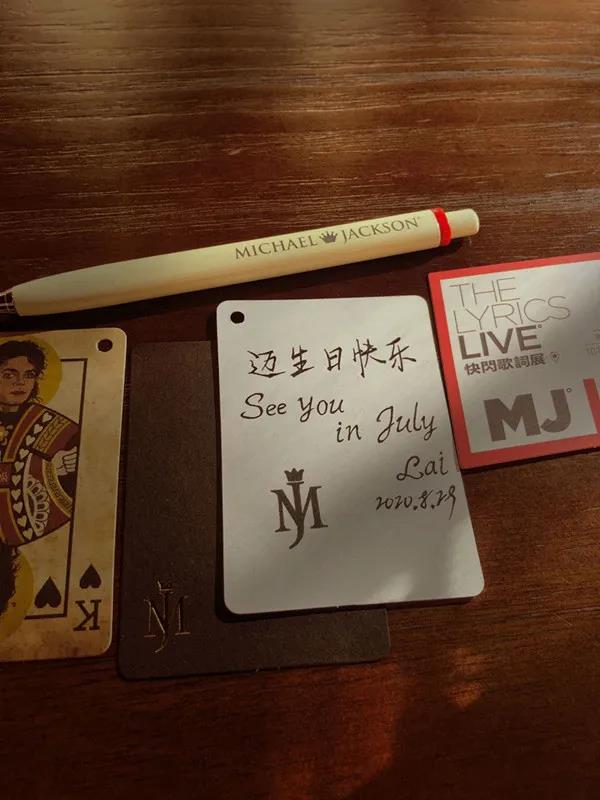 MICHAEL JACKSON
THE
LYRICS
LIVE
快閃歌詞展
MJ
迈生日快乐
See you
in July
Lai
2020.8.29
MJ
MJ
K